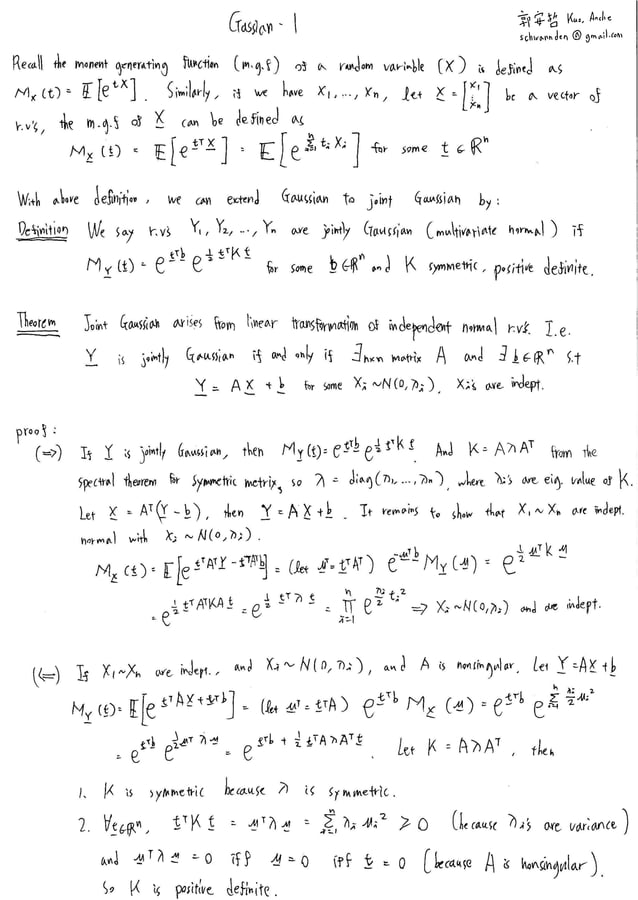 Gassian - 1
郭安哲 Kuo, Anche
schwannden@gmail.com
Recall the moment generating function (m.g.f) of a random varinble (X) is defined as
Mx(t) = E[e^{tX}]. Similarly, if we have X1, ..., Xn, let X = [X1 ⋮ Xn] be a vector of
r.v's, the m.g.f of X can be defined as
Mx(t) = E[e^{tᵀX}] = E[e^{Σ_{i=1}^{n} ti Xi}] for some t ∈ Rⁿ
With above definition, we can extend Gaussian to joint Gaussian by:
Definition We say r.v.s Y1, Y2, ..., Yn are jointly Gaussian (multivariate normal) if
My(t) = e^{tᵀb} e^{½ tᵀK t} for some b∈Rⁿ and K symmetric, positive definite.
Theorem Joint Gaussian arises from linear transformation of independent normal r.v.s. I.e.
Y is jointly Gaussian if and only if ∃ n×n matrix A and ∃ b∈Rⁿ s.t
Y = AX + b for some Xi ~ N(0, λi), Xi's are indept.
proof:
(⇒) If Y is jointly Gaussian, then My(t) = e^{tᵀb} e^{½ tᵀK t}. And K = AλAᵀ from the
spectral theorem for symmetric metrix, so λ = diag(λ1, ..., λn), where λi's are eig. value of K.
Let X = Aᵀ(Y - b), then Y = AX + b. It remains to show that X1 ~ Xn are indept.
normal with Xi ~ N(0, λi).
Mx(t) = E[e^{tᵀAᵀY - tᵀAᵀb}] = (let uᵀ = tᵀAᵀ) e^{-uᵀb} My(u) = e^{½ uᵀK u}
= e^{½ tᵀAᵀKA t} = e^{½ tᵀλ t} = Π_{i=1}^{n} e^{λi/2 ti²} ⇒ Xi ~ N(0, λi) and are indept.
(⇐) If X1 ~ Xn are indept., and Xi ~ N(0, λi), and A is nonsingular. Let Y = AX + b
My(t) = E[e^{tᵀAX + tᵀb}] = (let uᵀ = tᵀA) e^{tᵀb} Mx(u) = e^{tᵀb} e^{Σ_{i=1}^{n} λi/2 ui²}
= e^{tᵀb} e^{½ uᵀλ u} = e^{tᵀb + ½ tᵀAλAᵀt}. Let K = AλAᵀ, then
1. K is symmetric because λ is symmetric.
2. ∀t∈Rⁿ, tᵀK t = uᵀλ u = Σ_{i=1}^{n} λi ui² ≥ 0 (because λi's are variance)
and uᵀλ u = 0 iff u = 0 iff t = 0 (because A is nonsingular).
So K is positive definite.